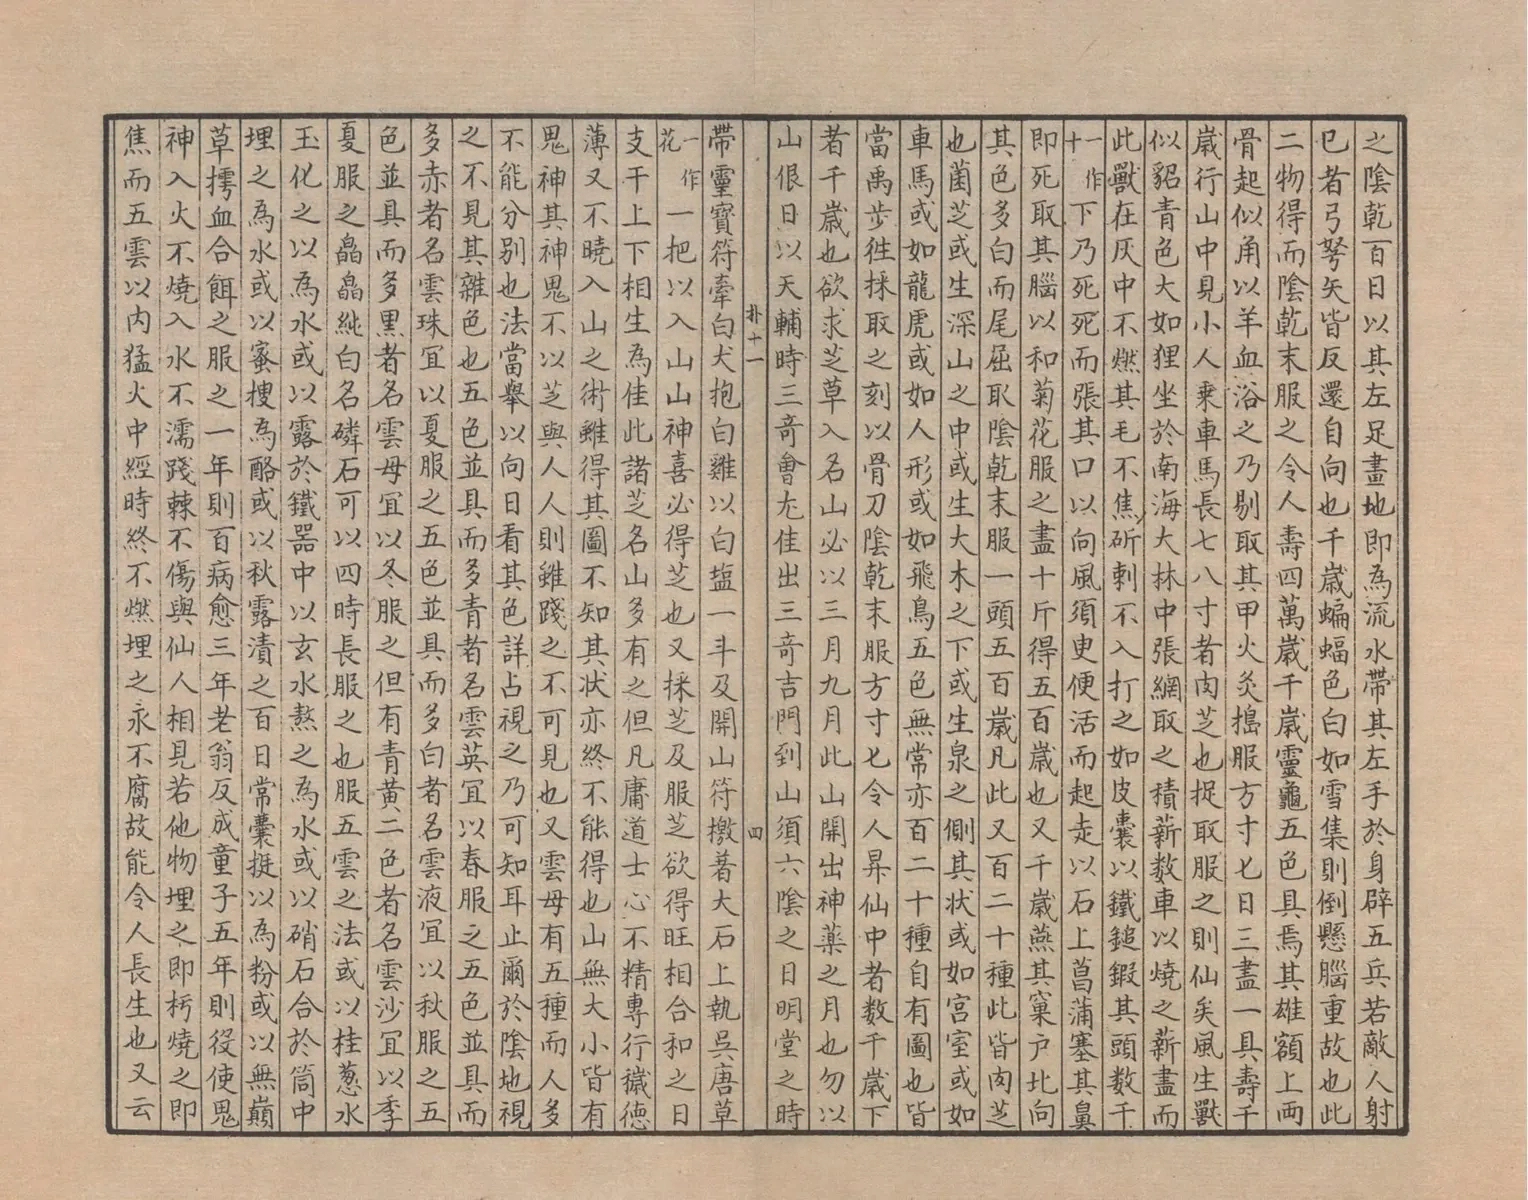 之陰乾百日以其左足畫地即為流水帶其左手於身辟五兵若敵人射
已者弓弩矢皆反還自向也千歲蝙蝠色白如雪集則倒懸腦重故也此
二物得而陰乾末服之令人壽四萬歲千歲靈龜五色具焉其雄額上兩
骨起似角以羊血浴之乃剔取其甲火炙搗服方寸七日三盡一具壽千
歲行山中見小人乘車馬長七八寸者肉芝也捉取服之則仙矣風生獸
似貂青色大如狸坐於南海大林中張網取之積薪數車以燒之薪盡而
此獸在灰中不燃其毛不焦斫刺不入打之如皮囊以鐵鎚鍛其頭數千
一作十下乃死死而張其口以向風須臾便活而起走以石上菖蒲塞其鼻
即死取其腦以和菊花服之盡十斤得五百歲也又千歲燕其窠戶北向
其色多白而尾屈取陰乾末服一頭五百歲凡此又百二十種此皆肉芝
也菌芝或生深山之中或生大木之下或生泉之側其狀或如宮室或如
車馬或如龍虎或如人形或如飛鳥五色無常亦百二十種自有圖也皆
當禹步往採取之刻以骨刀陰乾末服方寸七令人昇仙中者數千歲下
者千歲也欲求芝草入名山必以三月九月此山開出神藥之月也勿以
山佷日以天輔時三奇會尤佳出三奇吉門到山須六陰之日明堂之時
朴十一 四
帶靈寶符牽白犬抱白雞以白塩一斗及開山符檄著大石上執吳唐草
一作花一把以入山山神喜必得芝也又採芝及服芝欲得旺相合和之日
支干上下相生為佳此諸芝名山多有之但凡庸道士心不精專行穢德
薄又不曉入山之術雖得其圖不知其狀亦終不能得也山無大小皆有
鬼神其神鬼不以芝與人人則雖踐之不可見也又雲母有五種而人多
不能分別也法當舉以向日看其色詳占視之乃可知耳止爾於陰地視
之不見其雜色也五色並具而多青者名雲英宜以春服之五色並具而
多赤者名雲珠宜以夏服之五色並具而多白者名雲液宜以秋服之五
色並具而多黑者名雲母宜以冬服之但有青黃二色者名雲沙宜以季
夏服之皛皛純白名磷石可以四時長服之也服五雲之法或以桂葱水
玉化之以為水或以露於鐵器中以玄水熬之為水或以硝石合於筒中
埋之為水或以蜜搜為酪或以秋露漬之百日常囊挻以為粉或以無巔
草摴血合餌之服之一年則百病愈三年老翁反成童子五年則役使鬼
神入火不燒入水不濡踐棘不傷與仙人相見若他物埋之即朽燒之即
焦而五雲以內猛火中經時終不燃埋之永不腐故能令人長生也又云